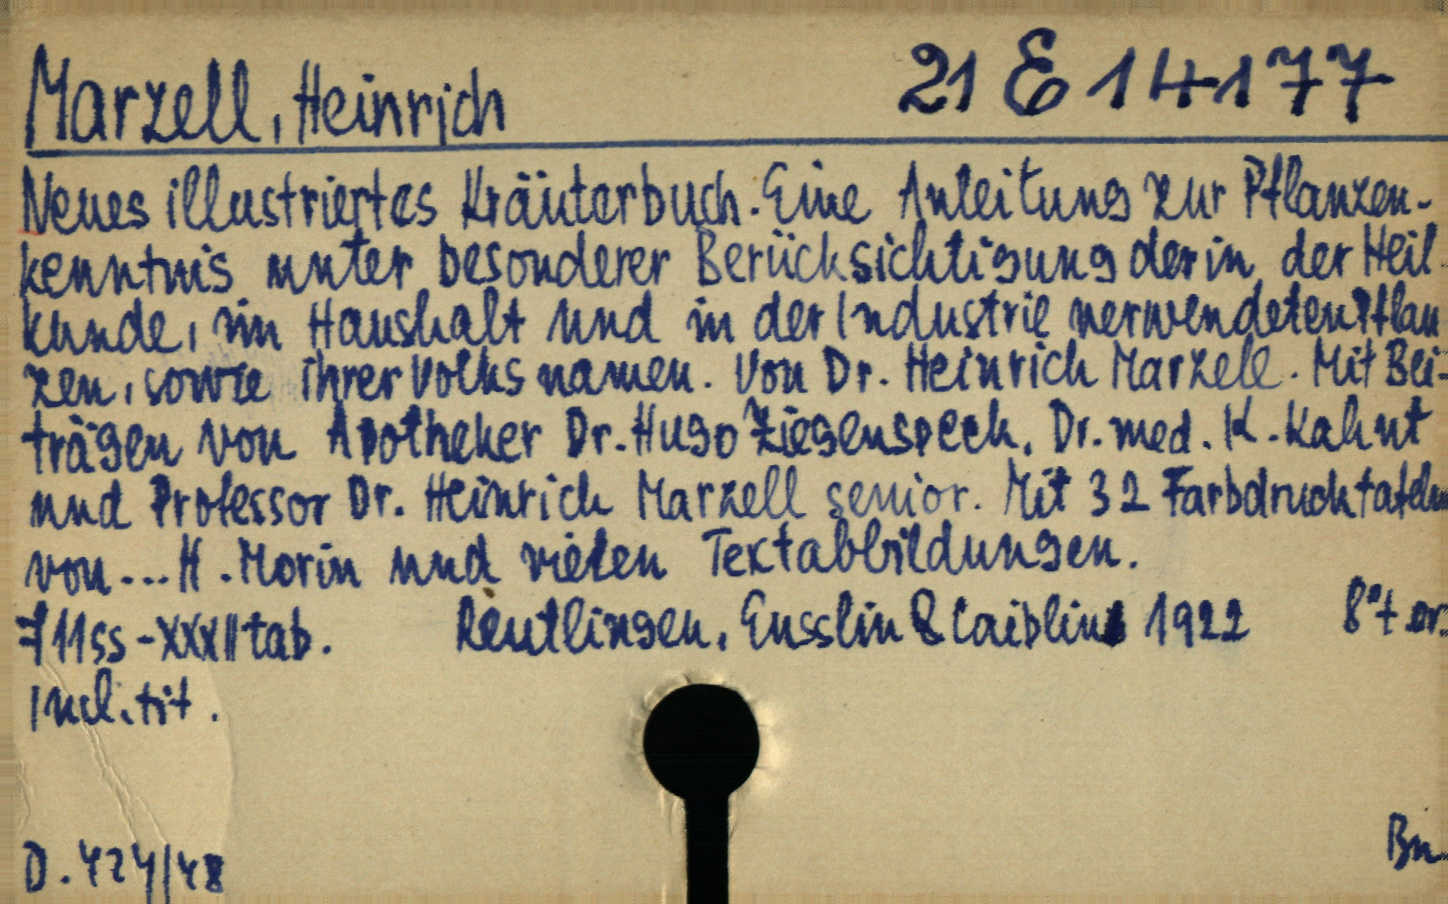 Marzell, Heinrich 21 E 14177
Neues illustriertes Kräuterbuch. Eine Anleitung zur Pflanzen-
kenntnis unter besonderer Berücksichtigung der in der Heil
kunde, im Haushalt und in der Industrie verwendeten Pflan
zen, sowie ihrer Volksnamen. Von Dr. Heinrich Marzell. Mit Bei-
trägen von Apotheker Dr. Hugo Ziegenspeck, Dr. med. K. Kahnt
und Professor Dr. Heinrich Marzell senior. Mit 32 Farbdrucktafeln
von... H. Morin und vielen Textabbildungen.
711ss-XXXII tab. Reutlingen, Ensslin & Laiblin 1922 8°t.or.
Incl. tit.
D. 424/48 Bn.